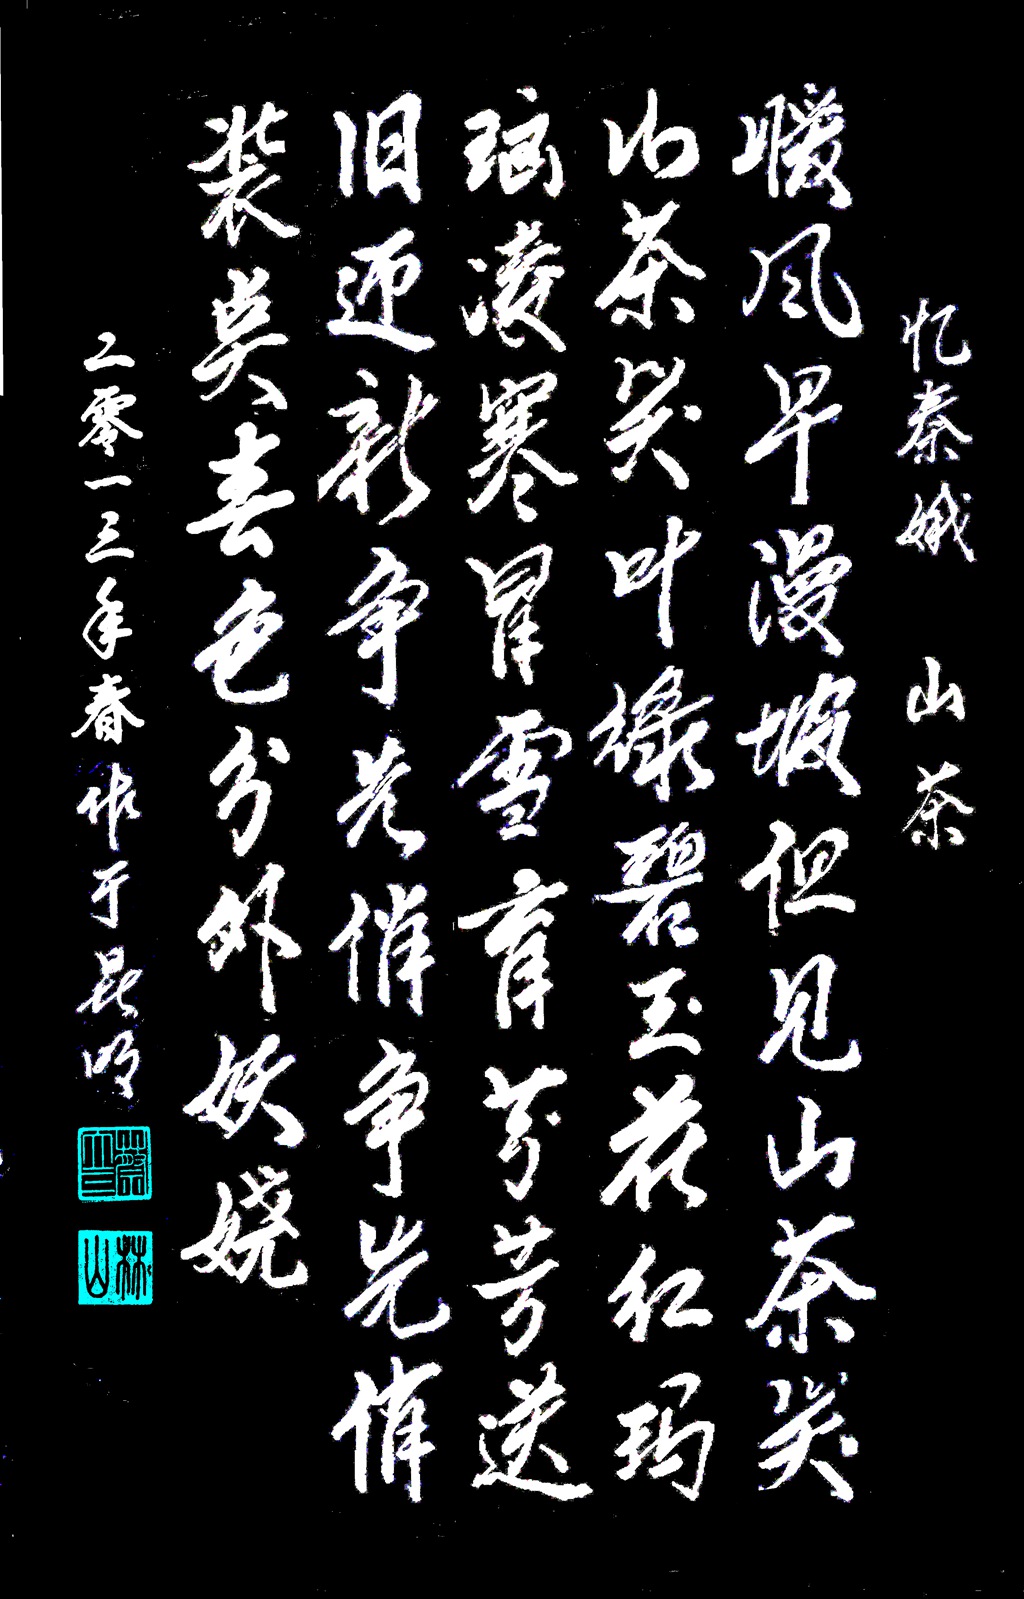 忆秦娥 山茶
暖风早漫坡但见山茶笑
山茶笑叶绿碧玉花红玛
瑙凌寒冒雪育芬芳送
旧迎新争先俏争先俏
装点春色分外妖娆
二零一三年春作于昆明
林山